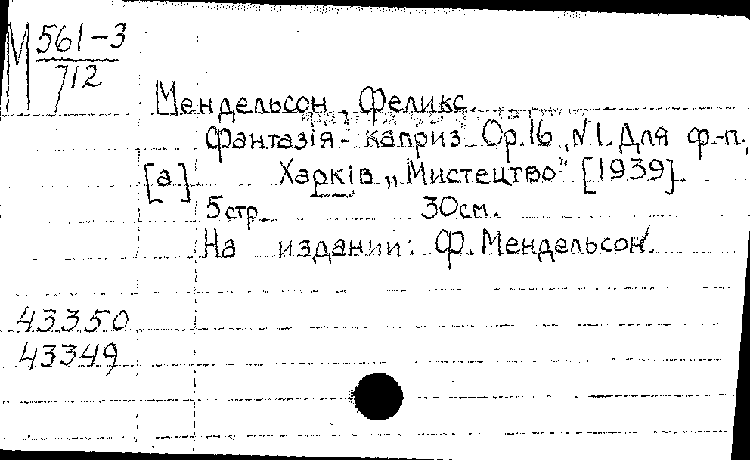 М 561-3
712
Мендельсон, Феликс.
Фантазія-каприз Op.16, N1. Для ф-п.,
[а] Харкiв „Мистецтво" [1939].
5стр. 30см.
На издании: Ф. Мендельсон.
43350
43349